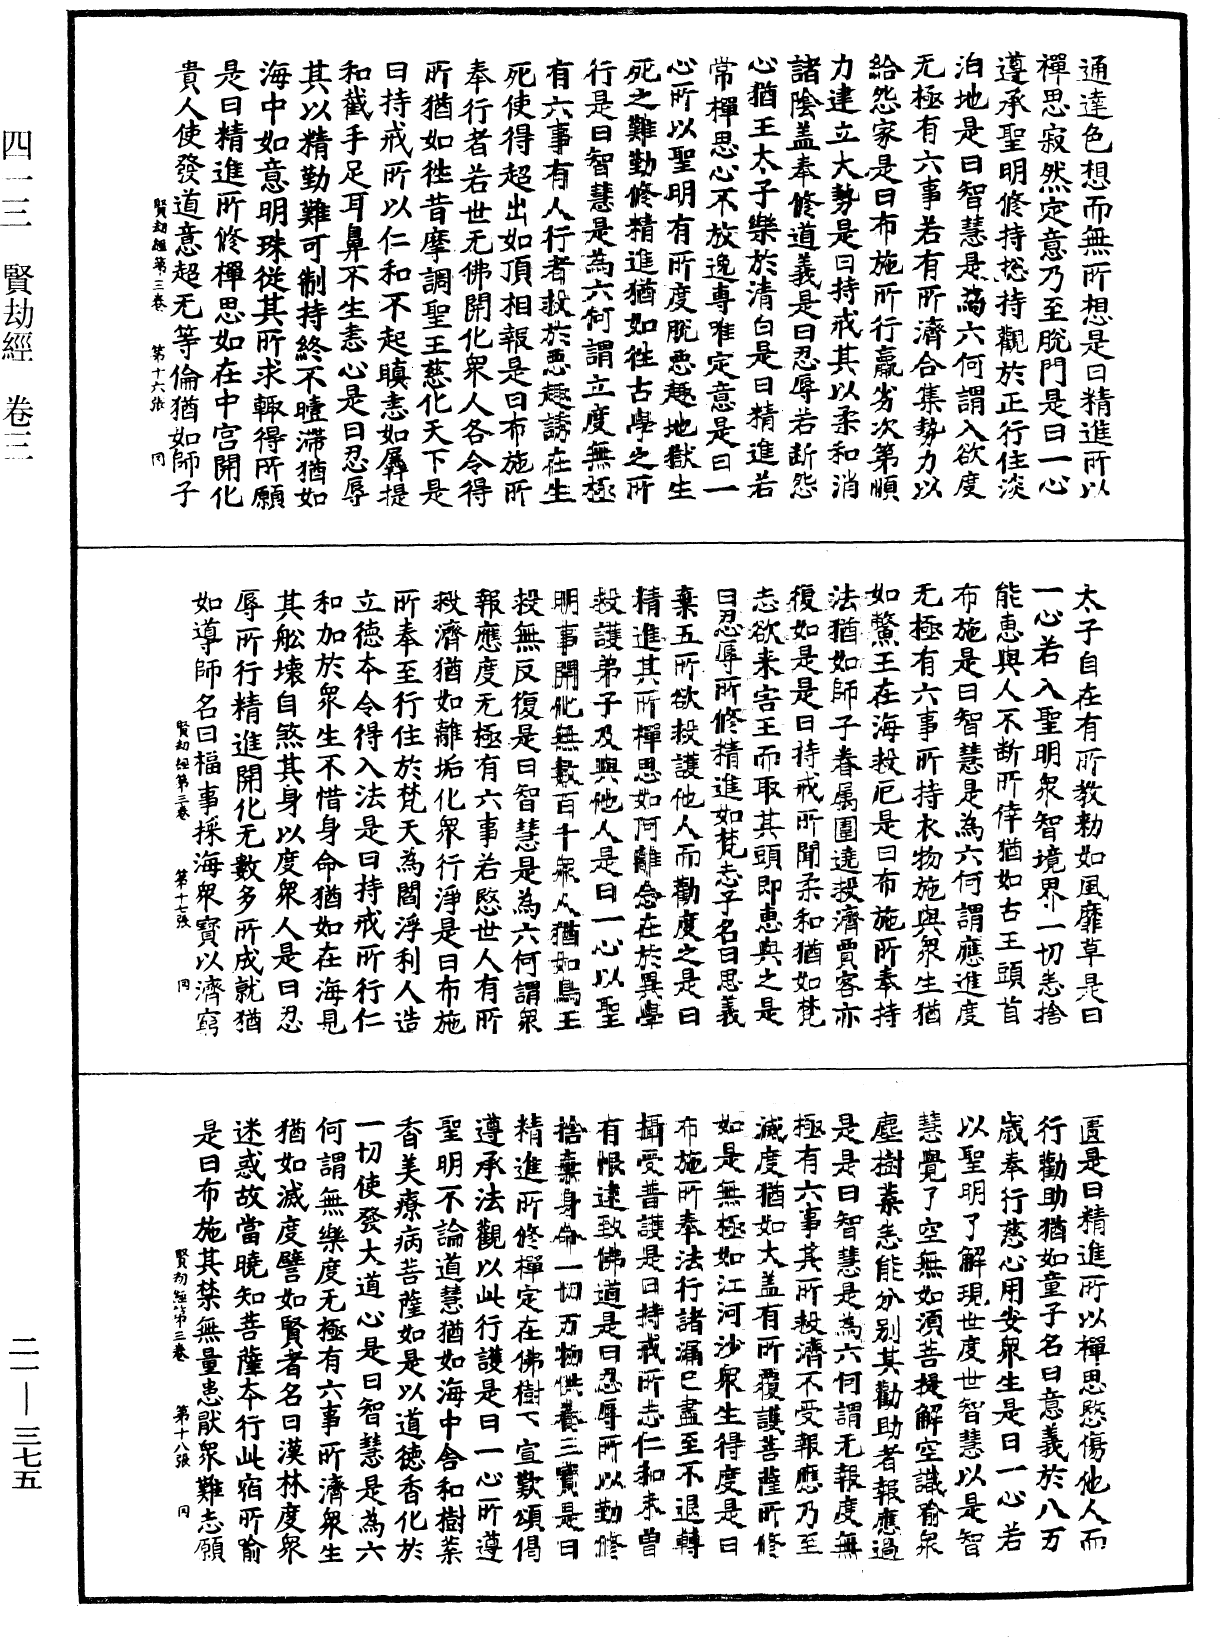 通達色想而無所想是曰精進所以
禪思寂然定意乃至脫門是曰一心
遵承聖明修持捴持觀於正行住淡
泊地是曰智慧是為六何謂入欲度
无極有六事若有所濟合集勢力以
給怨家是曰布施所行羸劣次第順
力建立大勢是曰持戒其以柔和消
諸陰盖奉修道義是曰忍辱若斷怨
心猶王太子樂於清白是曰精進若
常禪思心不放逸專唯定意是曰一
心所以聖明有所度脫惡趣地獄生
死之難勤修精進猶如往古學之所
行是曰智慧是為六何謂立度無極
有六事有人行者救於惡趣誘在生
死使得超出如頂相報是曰布施所
奉行者若世无佛開化衆人各令得
所猶如往昔摩調聖王慈化天下是
曰持戒所以仁和不起瞋恚如羼提
和截手足耳鼻不生恚心是曰忍辱
其以精勤難可制持終不曀滯猶如
海中如意明珠從其所求輒得所願
是曰精進所修禪思如在中宫開化
貴人使發道意超无等倫猶如師子
賢劫經第三卷 第十六张 罔
太子自在有所教勑如風靡草是曰
一心若入聖明衆智境界一切悉捨
能惠與人不断所倖猶如古王頭首
布施是曰智慧是為六何謂應進度
无極有六事所持衣物施與衆生猶
如鱉王在海救厄是曰布施所奉持
法猶如師子眷属圍遶救濟賈客亦
復如是是曰持戒所聞柔和猶如梵
志欲来害王而取其頭即惠與之是
曰忍辱所修精進如梵志子名曰思義
棄五所欲救護他人而勸度之是曰
精進其所禪思如阿離念在於異學
救護弟子及與他人是曰一心以聖
明事開化無數百千衆人猶如鳥王
投無反復是曰智慧是為六何謂衆
報應度无極有六事若愍世人有所
救濟猶如離垢化衆行淨是曰布施
所奉至行住於梵天為閻浮利人造
立德本令得入法是曰持戒所行仁
和加於衆生不惜身命猶如在海見
其舩壞自煞其身以度衆人是曰忍
辱所行精進開化无數多所成就猶
如導師名曰福事採海衆寳以濟窮
賢劫經第三卷 第十七张 罔
匱是曰精進所以禪思愍傷他人而
行勸助猶如童子名曰意義於八万
歲奉行慈心用安衆生是曰一心若
以聖明了解現世度世智慧以是智
慧覺了空無如須菩提解空識喻衆
塵樹葉悉能分别其勸助者報應過
是是曰智慧是為六何謂无報度無
極有六事其所救濟不受報應乃至
滅度猶如大盖有所覆護菩薩所修
如是無極如江河沙衆生得度是曰
布施所奉法行諸漏已盡至不退轉
攝受普護是曰持戒所志仁和未曾
有恨逮致佛道是曰忍辱所以勤修
捨棄身命一切万物供養三寳是曰
精進所修禪定在佛樹下宣歎頌偈
遵承法觀以此行護是曰一心所遵
聖明不論道慧猶如海中舍和樹葉
香美療病菩薩如是以道德香化於
一切使發大道心是曰智慧是為六
何謂無樂度无極有六事所濟衆生
猶如滅度譬如賢者名曰漢林度衆
迷惑故當曉知菩薩本行此宿所喻
是曰布施其禁無量患猒衆難志願
賢劫經第三卷 第十八张 罔
四一三 賢劫經 卷三
二一—三七五